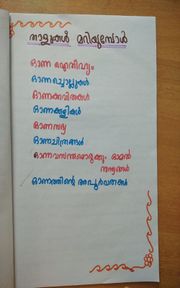 താളുകൾ മറിയുമ്പോൾ
ഓണ ഐതിഹ്യം
ഓണച്ചൊല്ലുകൾ
ഓണക്കവിതകൾ
ഓണക്കളികൾ
ഓണസദ്യ
ഓണചിത്രങ്ങൾ
ഓണവസന്തമൊരുക്കും ഓമൽ
ഓണത്തിന്റെ അപൂർവ്വതകൾ